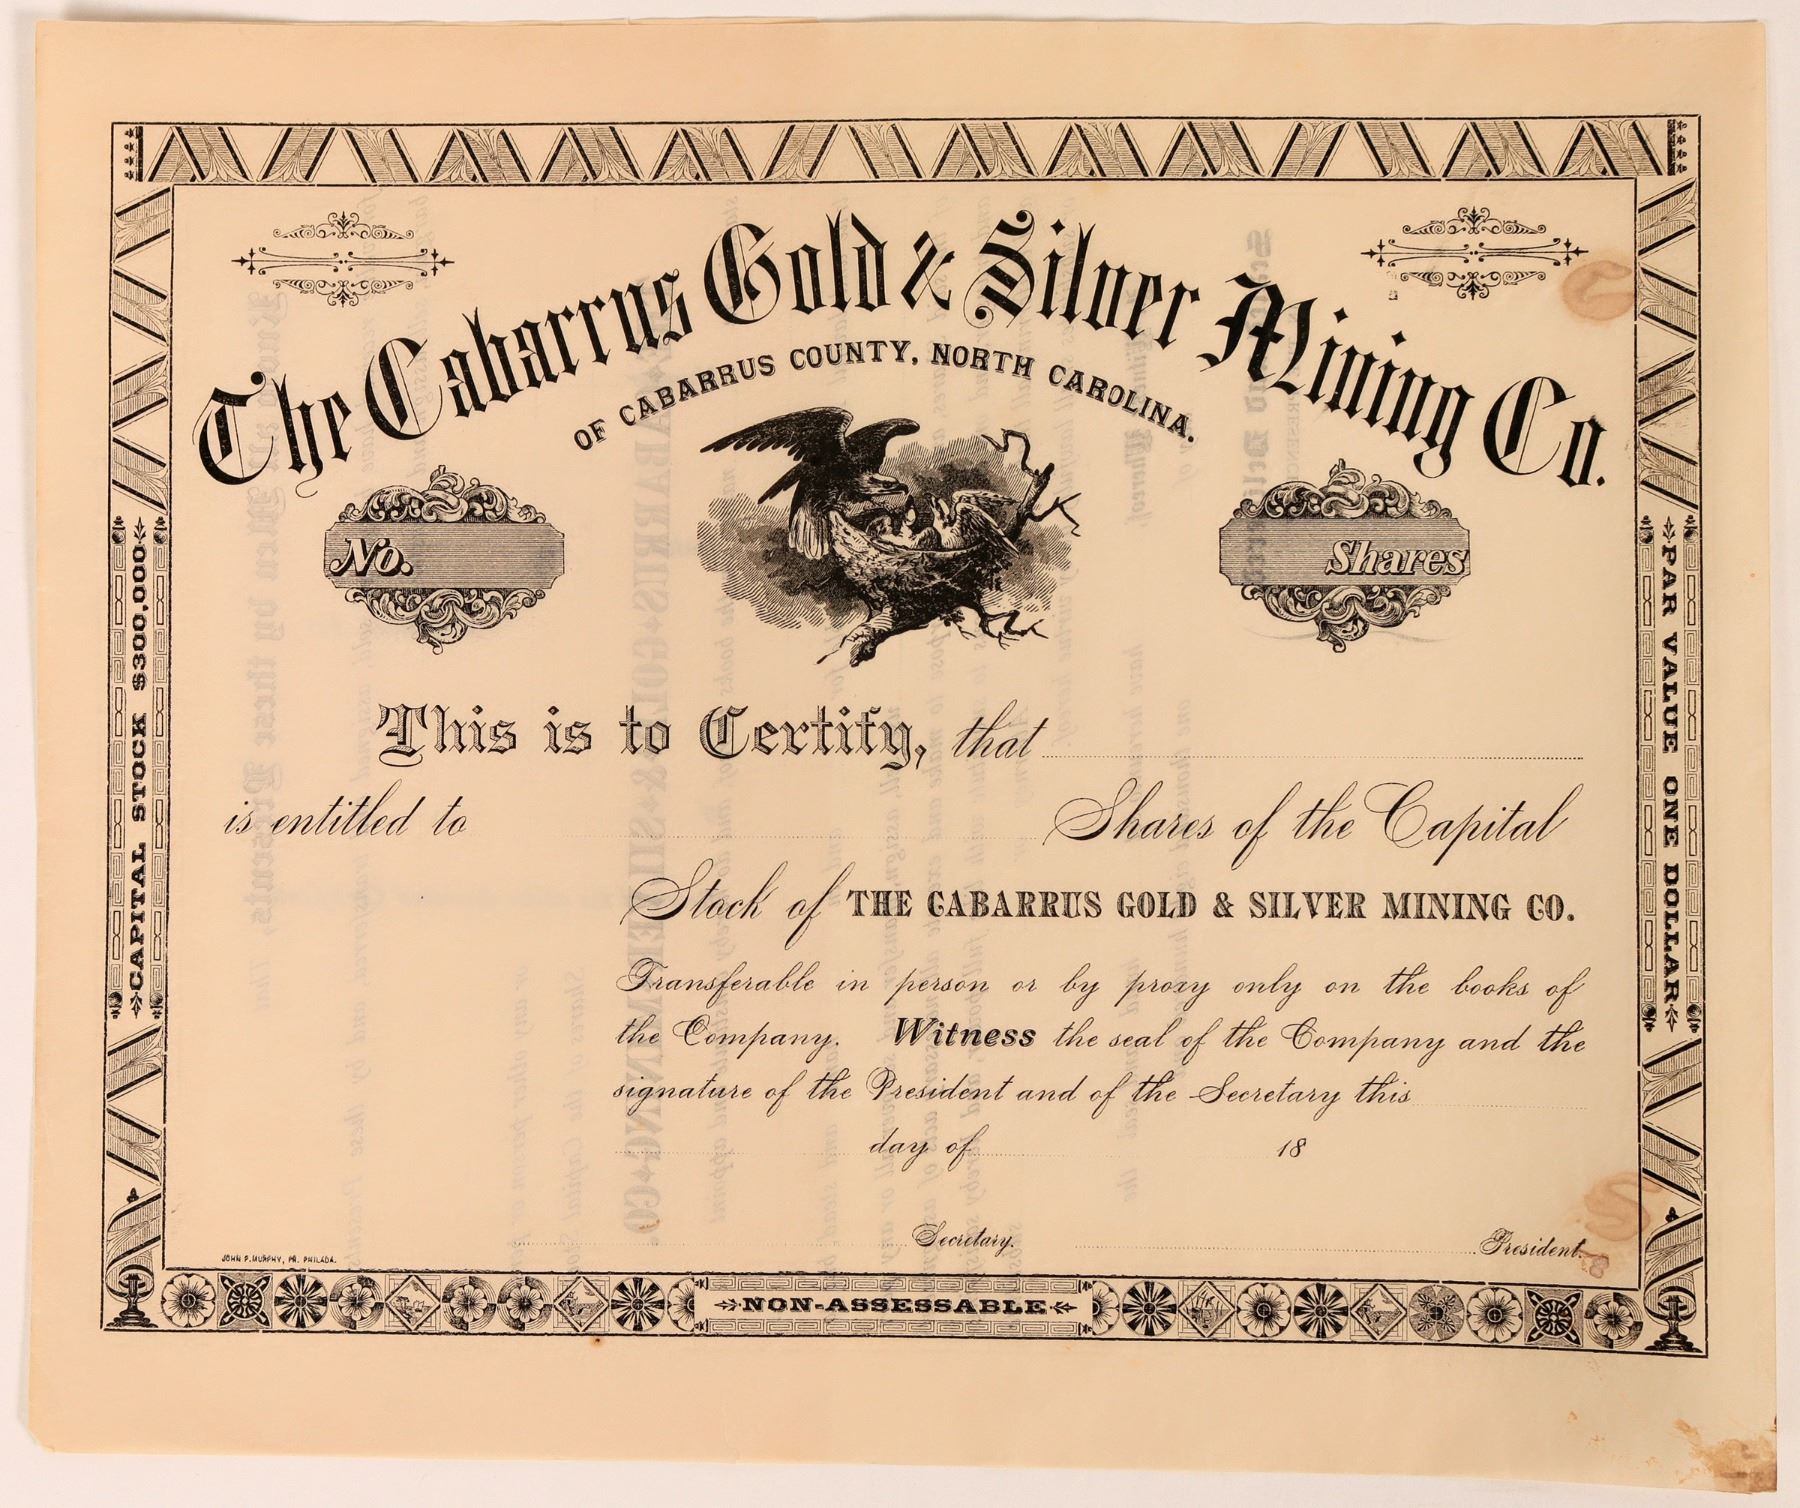 The Cabarrus Gold & Silver Mining Co.
OF CABARRUS COUNTY, NORTH CAROLINA.
No.
Shares
This is to Certify, that
is entitled to Shares of the Capital
Stock of THE CABARRUS GOLD & SILVER MINING CO.
Transferable in person or by proxy only on the books of
the Company. Witness the seal of the Company and the
signature of the President and of the Secretary this
day of 18
Secretary. President.
JOHN P. MURPHY, PR. PHILADA.
CAPITAL STOCK $300,000
PAR VALUE ONE DOLLAR
NON-ASSESSABLE